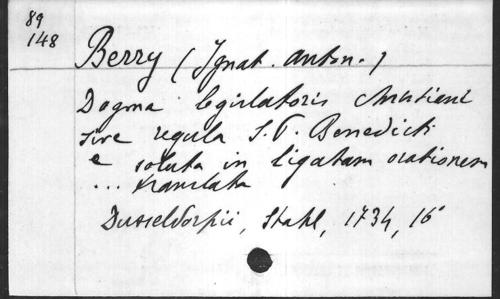 89
148
Berry (Ignat. Anton.)
Dogma legislatoris christiani
sive regula S. P. Benedicti
e soluta in ligatam orationem
... translata
Dusseldorpii, Stahl, 1734, 16°